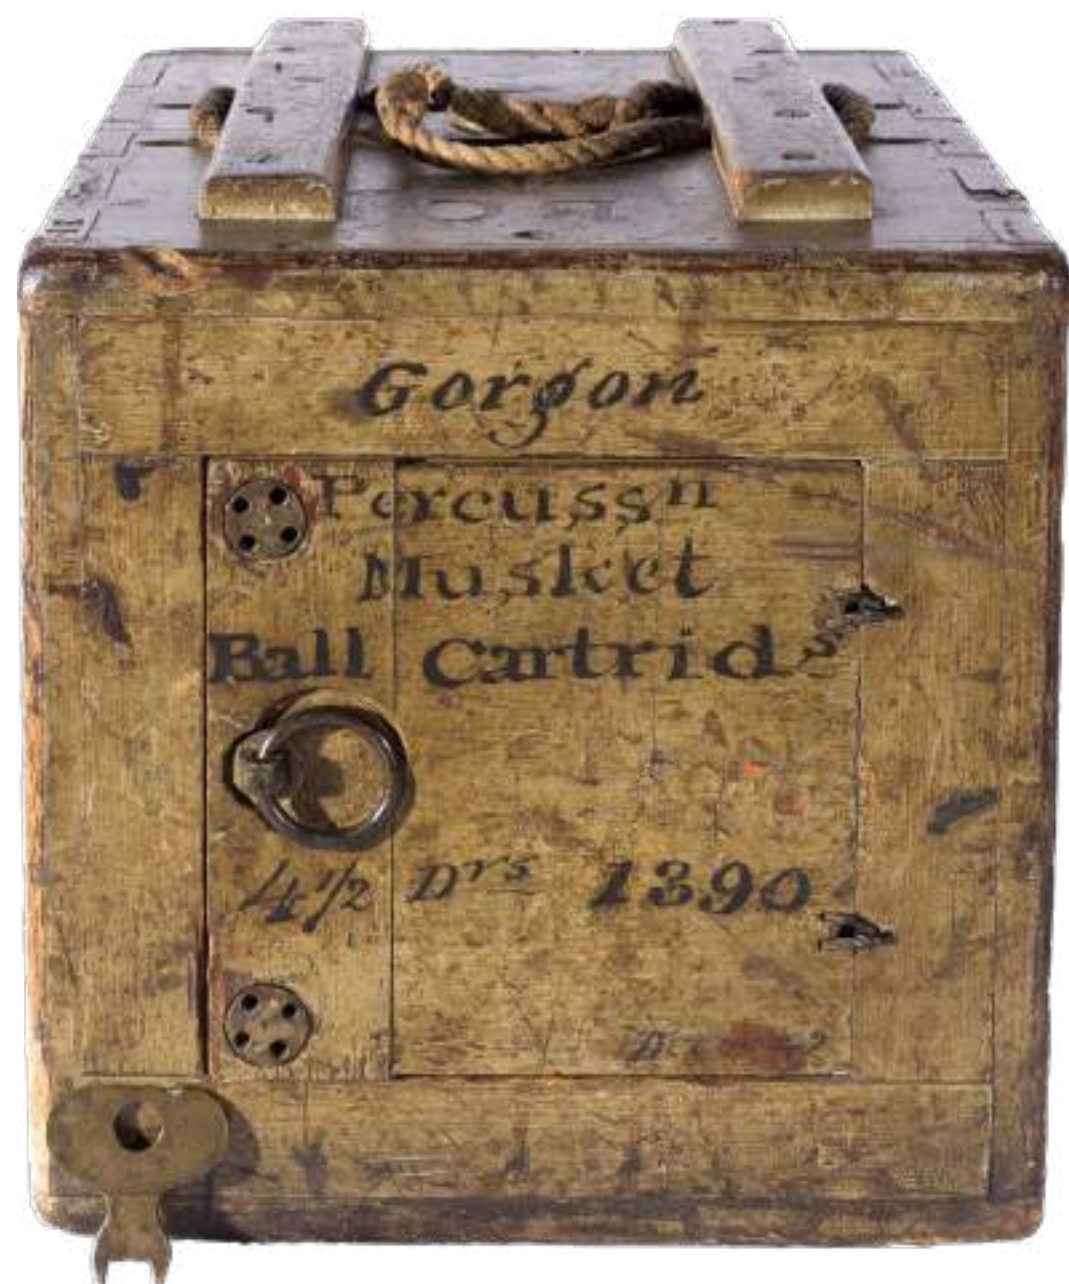 Gorgon
Percussn
Musket
Ball Cartrids
4½ Drs 1390